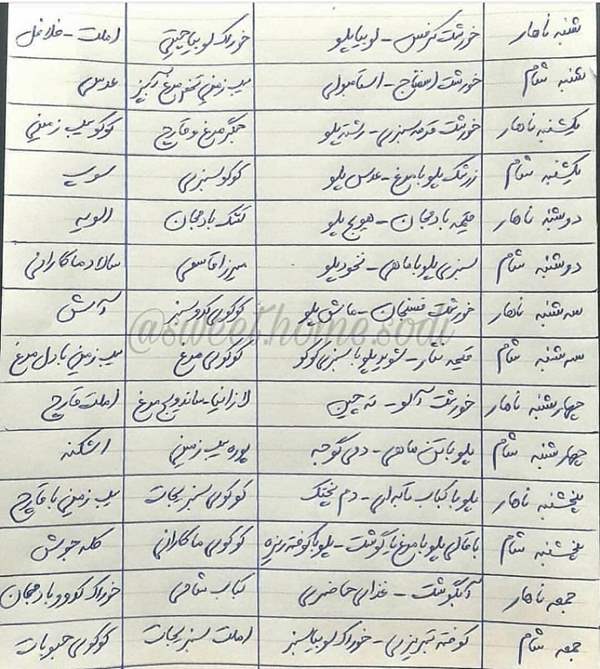 شنبه ناهار خورشت کرفس - لوبیا پلو خوراک لوبیا چیتی املت - فلافل
شنبه شام خورشت اسفناج - استامبولی سیب زمینی تخم مرغ آبپز عدسی
یکشنبه ناهار خورشت قرمه سبزی - رشته پلو جگر مرغ و قارچ کوکو سیب زمینی
یکشنبه شام زرشک پلو با مرغ - عدس پلو کوکو سبزی سوپ
دوشنبه ناهار قیمه بادمجان - هویج پلو کشک بادمجان الویه
دوشنبه شام سبزی پلو با ماهی - نخود پلو میرزا قاسمی سالاد ماکارانی
سه شنبه ناهار خورشت فسنجان - ماش پلو کوکوی کدو سبز آش
@sweet.home.sodi
سه شنبه شام قیمه نثار - شوید پلو با سبزی کوکو کوکوی مرغ سیب زمینی با دل مرغ
چهارشنبه ناهار خورشت آلو - ته چین لازانیا - ساندویچ مرغ املت قارچ
چهارشنبه شام پلو با تن ماهی - دمی گوجه پوره سیب زمینی اشکنه
پنجشنبه ناهار پلو با کباب تابه ای - دم پختک کوکوی سبزیجات سیب زمینی با قارچ
پنجشنبه شام باقالی پلو با مرغ یا گوشت - پلو با کوفته ریزه کوکوی ماکارانی کله جوش
جمعه ناهار آبگوشت - غذای حاضری کباب شامی خوراک کدو و بادمجان
جمعه شام کوفته تبریزی - خوراک لوبیا سبز املت سبزیجات کوکوی حبوبات